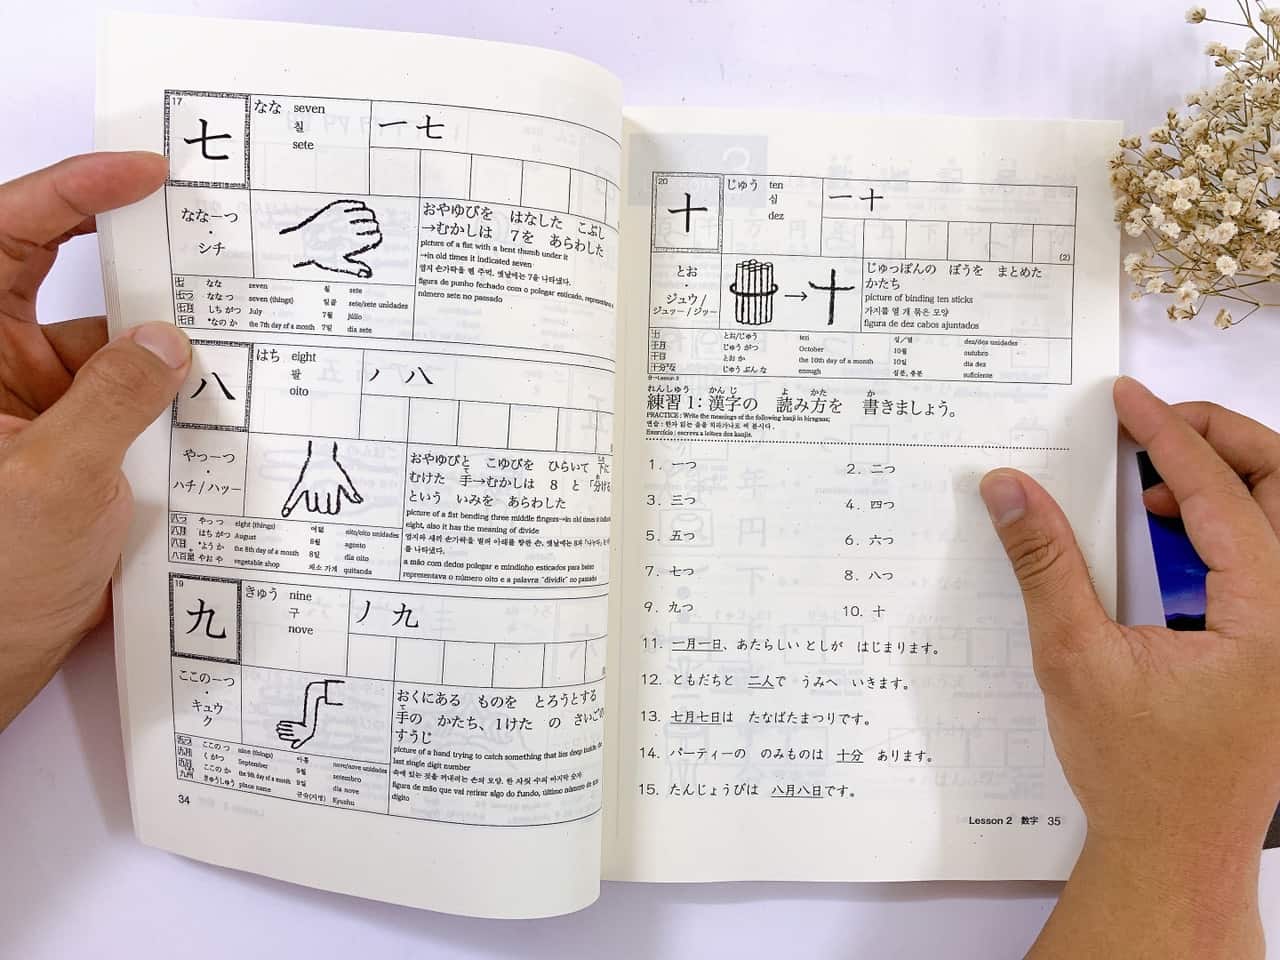 17
七
なな seven
칠
sete
一 七
なな―つ
・
シチ
おやゆびを はなした こぶし
→むかしは 7を あらわした
picture of a fist with a bent thumb under it
→in old times it indicated seven
엄지 손가락을 편 주먹. 옛날에는 7을 나타냈다.
figura de punho fechado com o polegar esticado,
número sete no passado
七 なな seven 칠 sete
七つ なな つ seven (things) 일곱 sete/sete unidades
七月 しち がつ July 7월 júlio
七日 *なの か the 7th day of a month 7일 dia sete
八
はち eight
팔
oito
ノ 八
やっ―つ
・
ハチ / ハッ―
おやゆびと こゆびを ひらいて 下に
むけた 手→むかしは 8 と 「分ける
という いみを あらわした
picture of a fist bending three middle fingers→in old times it
eight, also it has the meaning of divide
를 나타냈다.
a mão com dedos polegar e mindinho esticados para baixo
representava o número oito e a palavra "dividir" no passado
八つ やっ つ eight (things) 여덟 oito/oito unidades
八月 はち がつ August 8월 agosto
八日 *よう か the 8th day of a month 8일 dia oito
八百屋 やお や vegetable shop 채소 가게 quitanda
19
九
きゅう nine
구
nove
ノ 九
ここの―つ
・
キュウ
ク
おくにある ものを とろうとする
手の かたち、1けた の さいごの
すうじ
picture of a hand trying to catch something that lies deep inside, the
last single digit number
속에 있는 것을 꺼내려는 손의 모양. 한 자릿 수의 마지막 숫자
figura de mão que vai retirar algo do fundo, último número de um
dígito
九つ ここの つ nine (things) 아홉 nove/nove unidades
九月 く がつ September 9월 setembro
九日 ここの か the 9th day of a month 9일 dia nove
九州 きゅうしゅう place name 규슈(지명) Kyushu
34
20
十
じゅう ten
십
dez
一 十
(2)
とお
・
ジュウ /
ジュッ― / ジッ―
→
じゅっぽんの ぼうを まとめた
かたち
picture of binding ten sticks
가지를 열 개 묶은 모양
figura de dez cabos ajuntados
十 とお/じゅう ten 십/열 dez/dez unidades
十月 じゅう がつ October 10월 outubro
十日 とお か the 10th day of a month 10일 dia dez
十分*な じゅう ぶん な enough 십분, 충분 suficiente
分→Lesson 3
練習 1: 漢字の 読み方を 書きましょう。
PRACTICE : Write the meanings of the following kanji in hiragana:
연습 : 한자 읽는 음을 히라가나로 써 봅시다.
Exercício : escreva a leitura dos kanjis.
1. 一つ
2. 二つ
3. 三つ
4. 四つ
5. 五つ
6. 六つ
7. 七つ
8. 八つ
9. 九つ
10. 十
11. 一月一日、あたらしい としが はじまります。
12. ともだちと 二人で うみへ いきます。
13. 七月七日は たなばたまつりです。
14. パーティーの のみものは 十分 あります。
15. たんじょうびは 八月八日です。
Lesson 2 数字 35